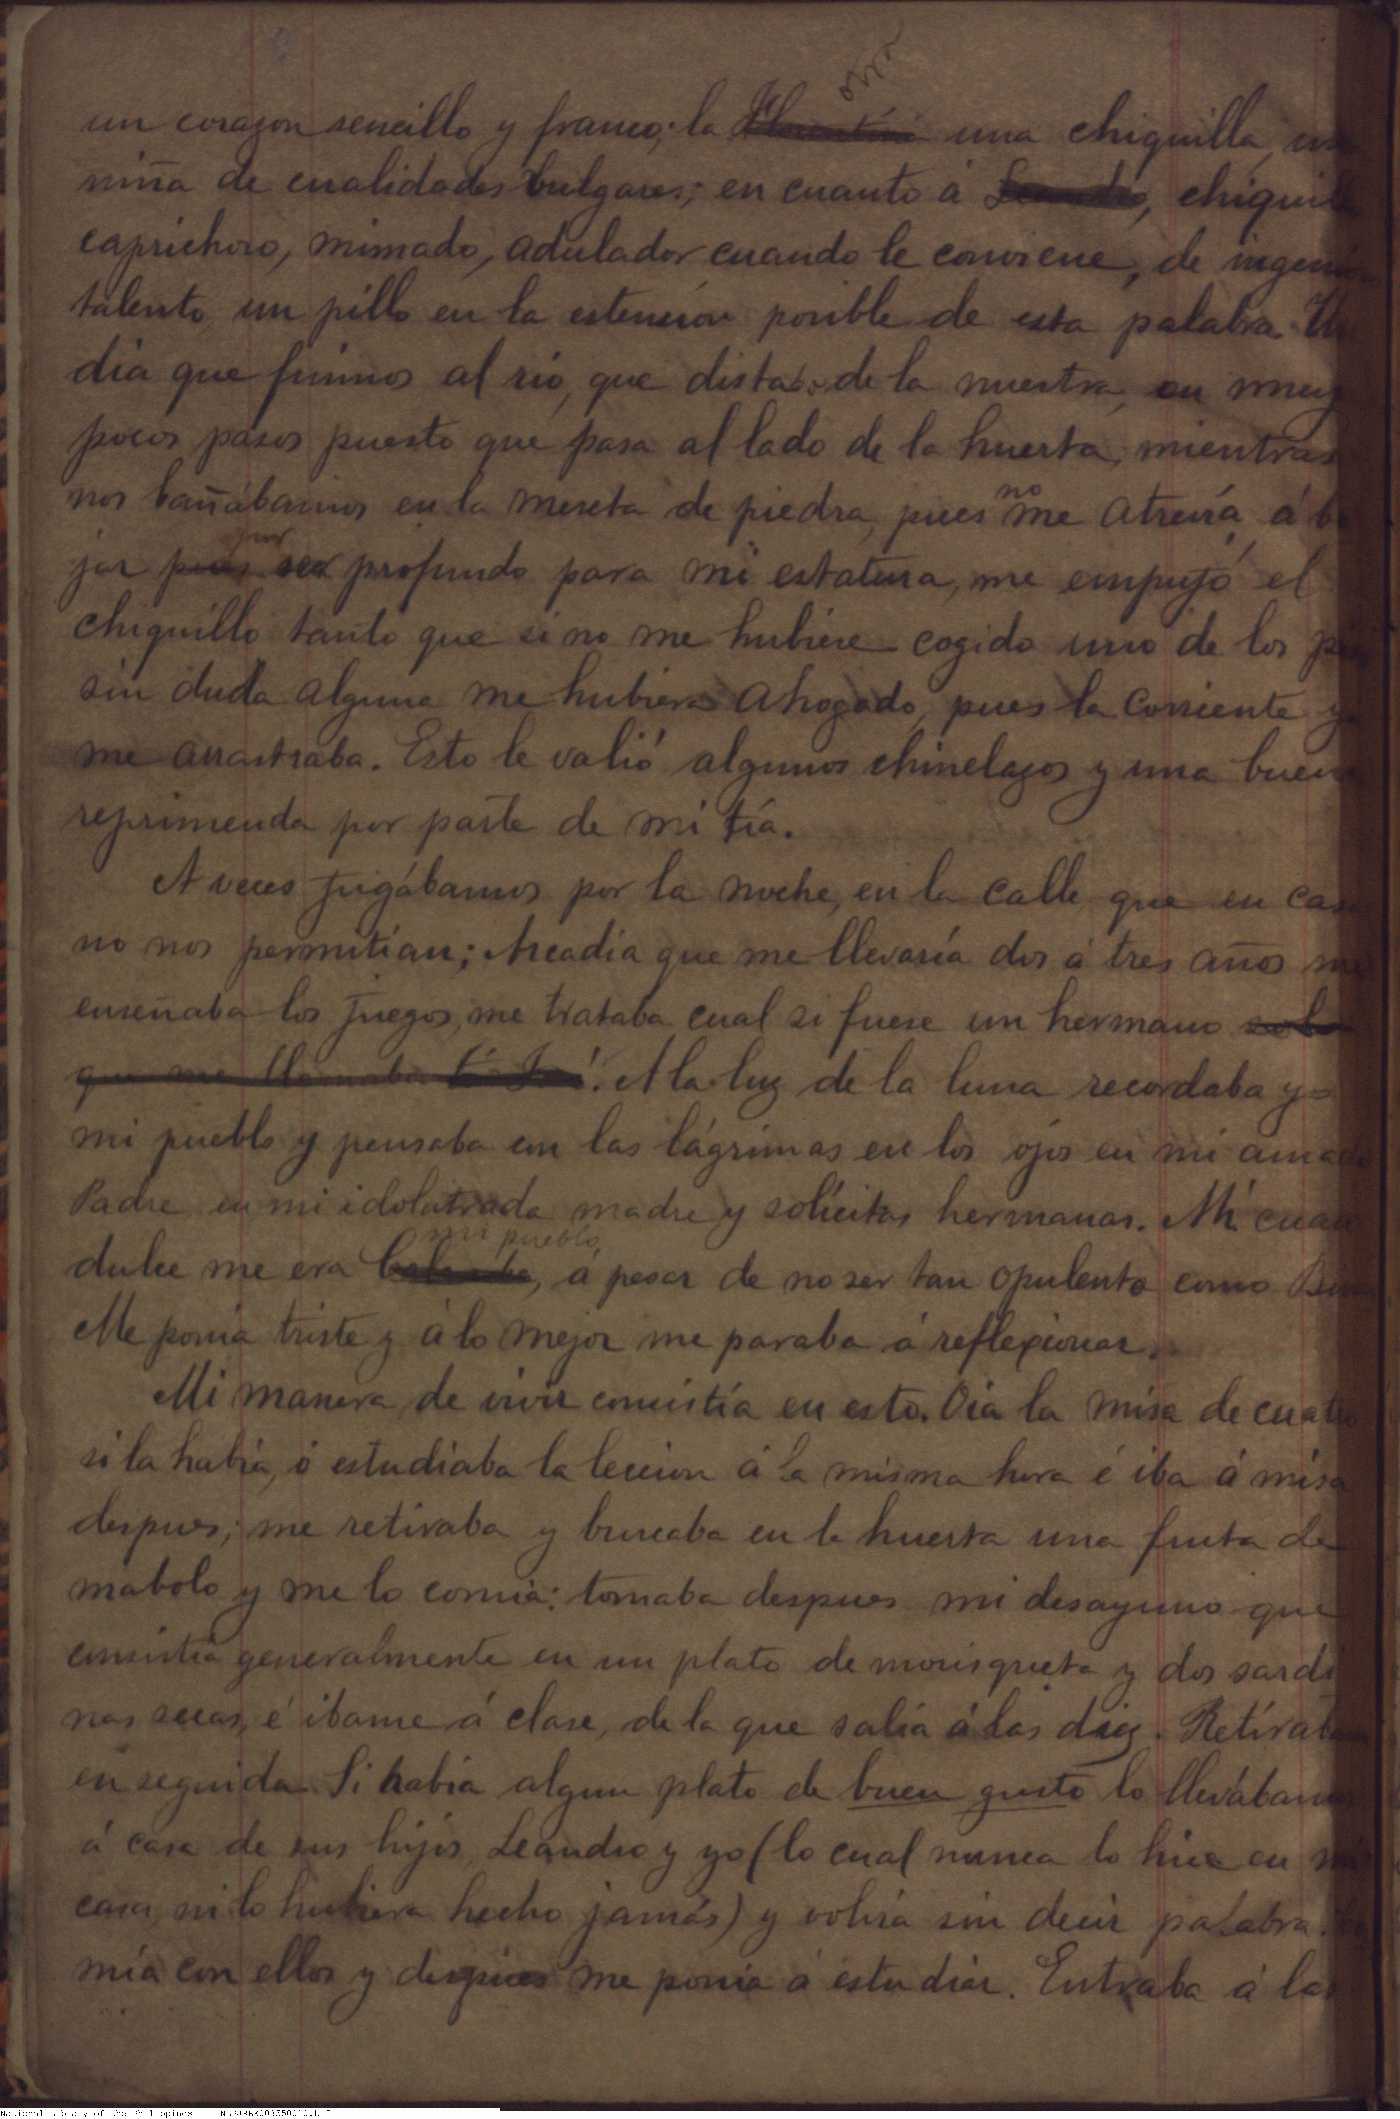 un corazon sencillo y franco; la ~~Florentina~~ otra una chiquilla, una
niña de cualidades vulgares; en cuanto á ~~Leandro~~, chiquillo
caprichoso, mimado, adulador cuando le conviene, de ingenioso
talento, un pillo en la estension posible de esta palabra. Un
dia que fuimos al rio, que distaba de la nuestra, en muy
pocos pasos puesto que pasa al lado de la huerta, mientras
nos bañábamos en la meseta de piedra, pues no me atrevía á ba
jar ~~pues~~ por ser profundo para mi estatura, me empujó el
chiquillo tanto que si no me hubiere cogido uno de los pies
sin duda alguna me hubiera ahogado, pues la corriente ya
me arrastraba. Esto le valió algunos chinelazos y una buena
reprimenda por parte de mi tía.
A veces jugábamos por la noche, en la calle que en casa
no nos permitían; Arcadia que me llevaría dos á tres años me
enseñaba los juegos, me trataba cual si fuese un hermano ~~solo~~
~~que me llamaba~~. A la luz de la luna recordaba yo
mi pueblo y pensaba con las lágrimas en los ojos en mi amado
Padre en mi idolatrada madre y solícitas hermanas. Ah! cuan
dulce me era ~~Calamba~~ mi pueblo, á pesar de no ser tan opulento como Biñan
Me ponia triste y á lo mejor me paraba á reflexionar.
Mi manera de vivir consistía en esto. Oia la misa de cuatro
si la habia, ó estudiaba la leccion á la misma hora é iba á misa
despues; me retiraba y buscaba en la huerta una fruta de
mabolo y me lo comia: tomaba despues mi desayuno que
consistía generalmente en un plato de morisqueta y dos sardi
nas secas, é ibame á clase, de la que salia á las diez. Retírabame
en seguida. Si habia algun plato de buen gusto lo llevábamos
á casa de sus hijos, Leandro y yo (lo cual nunca lo hice en mi
casa, ni lo hubiera hecho jamás) y volvia sin decir palabra. Co
mía con ellos y despues me ponia á estudiar. Entraba á las